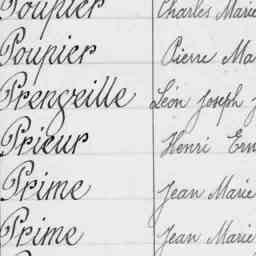 Poupier Charles Marie
Poupier Pierre Ma
Prengeille Léon Joseph J
Prieur Henri Ern
Prime Jean Marie
Prime Jean Marie